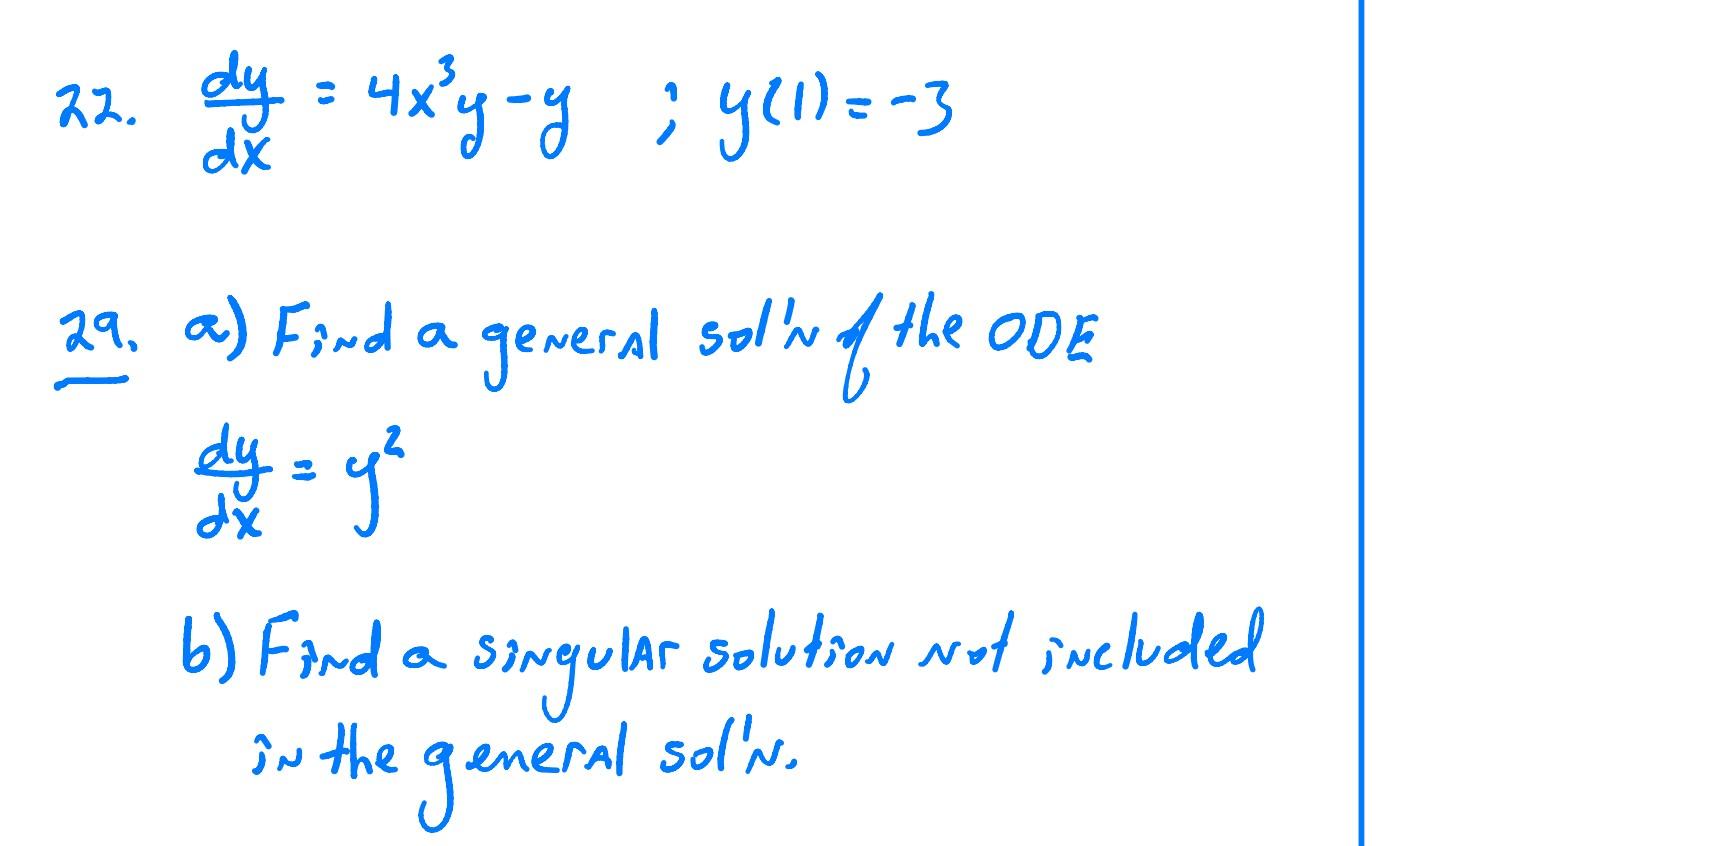 22. dy/dx = 4x³y - y ; y(1) = -3
29. a) Find a general sol'n of the ODE
dy/dx = y²
b) Find a singular solution not included
in the general sol'n.